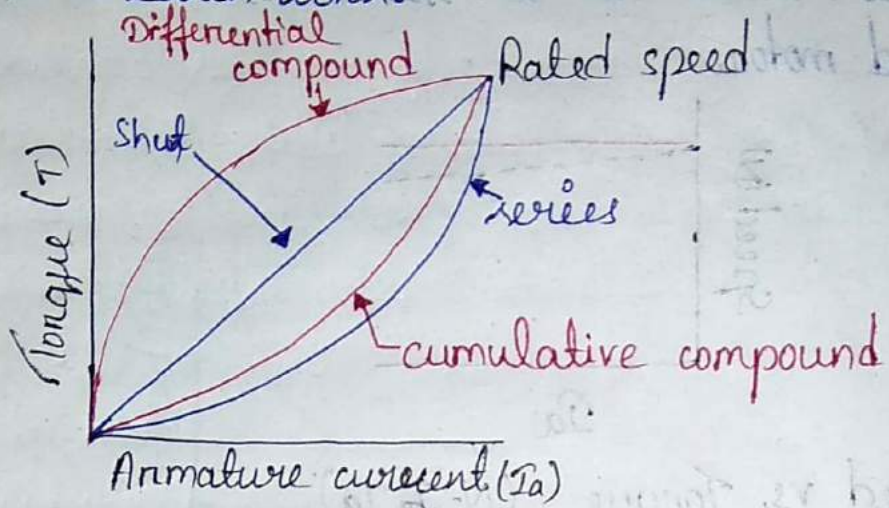 Differential
compound
Rated speed
Shut
series
Torque (T)
cumulative compound
Armature current (Ia)